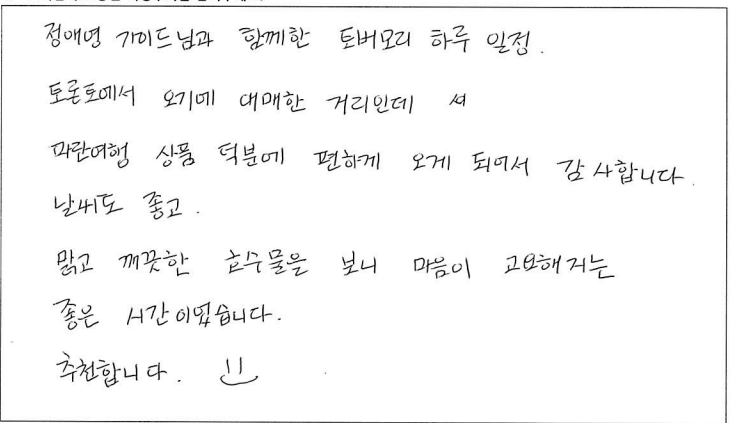 정애영 가이드님과 함께한 토버모리 하루 일정.
토론토에서 오기에 대매한 거리인데
파란여행 상품 덕분에 편하게 오게 되어서 감사합니다.
날씨도 좋고.
맑고 깨끗한 호수물을 보니 마음이 고요해지는
좋은 시간이었습니다.
추천합니다.